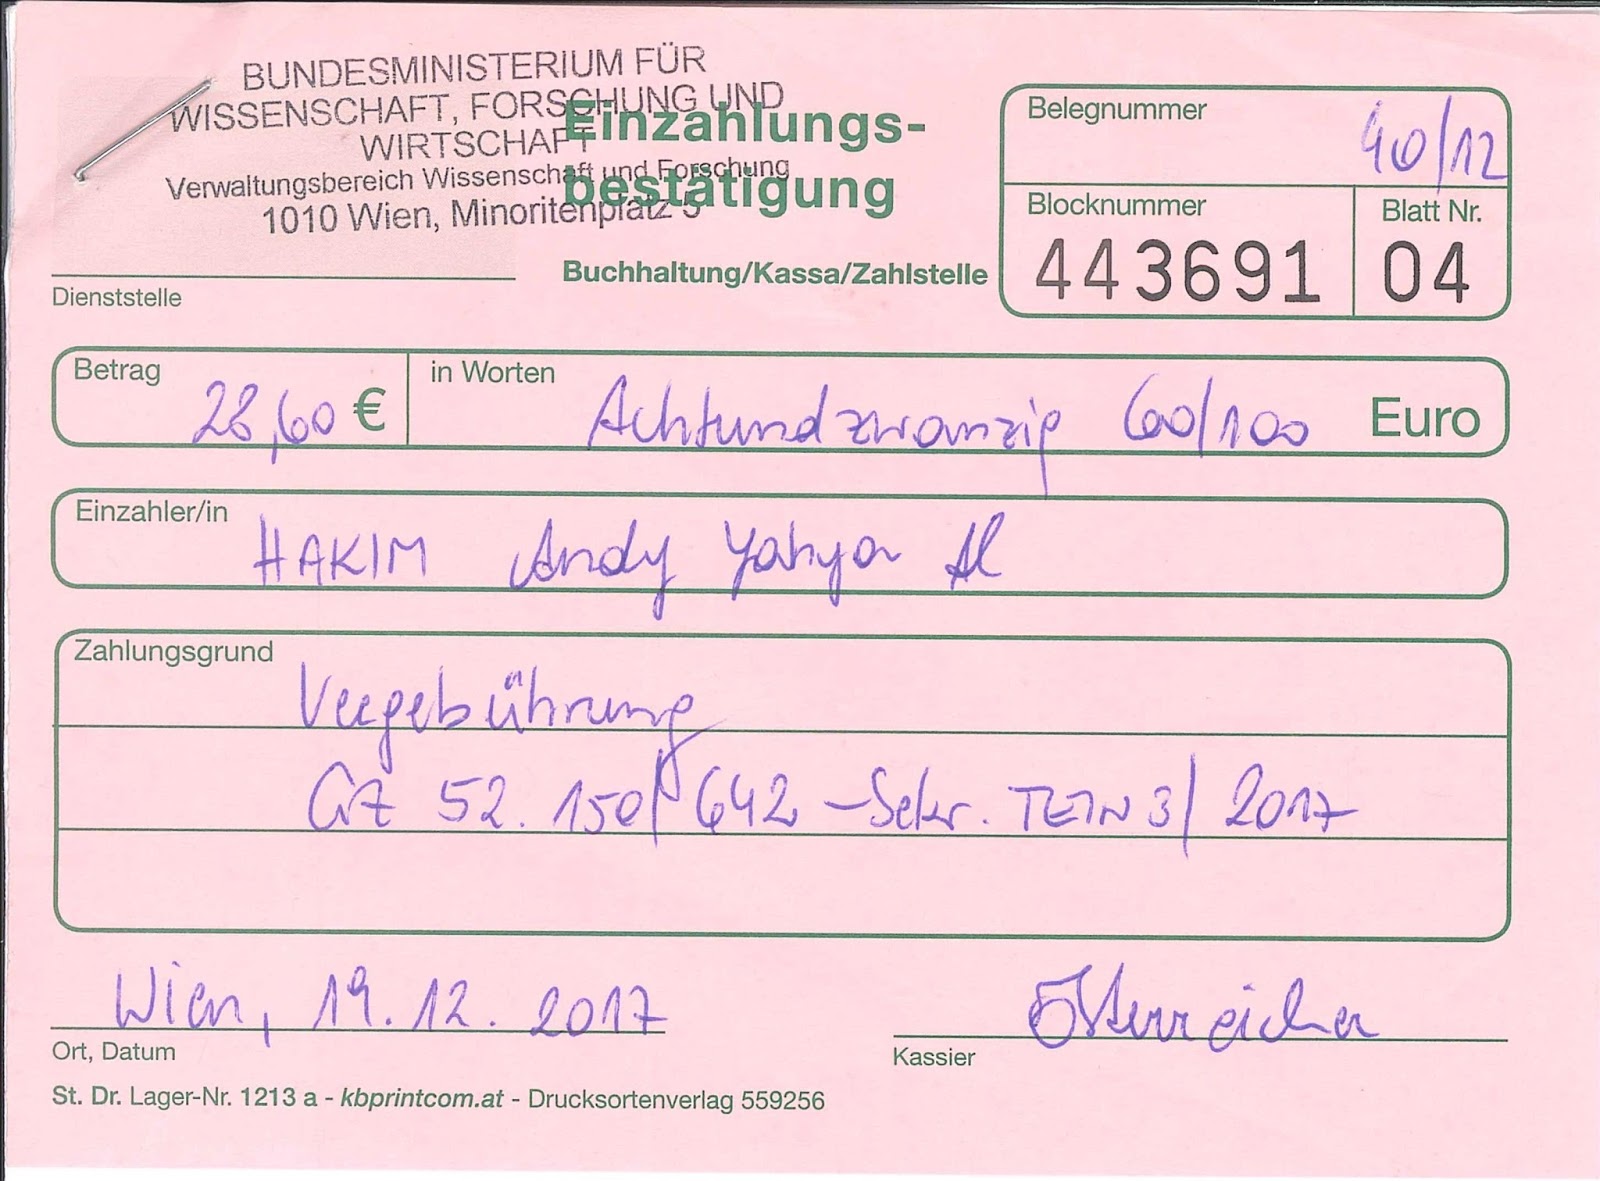 BUNDESMINISTERIUM FÜR
WISSENSCHAFT, FORSCHUNG UND
WIRTSCHAFT
Verwaltungsbereich Wissenschaft und Forschung
1010 Wien, Minoritenplatz 5
Dienststelle
Einzahlungs-
bestätigung
Buchhaltung/Kassa/Zahlstelle
Belegnummer
40/12
Blocknummer
443691
Blatt Nr.
04
Betrag
28,60 €
in Worten
Achtundzwanzig 60/100 Euro
Einzahler/in
HAKIM Andy Yahya Al
Zahlungsgrund
Vergebührung
GZ 52.150/642-Sekr. TETN 3/2017
Wien, 19.12.2017
Ort, Datum
Österreicher
Kassier
St. Dr. Lager-Nr. 1213 a - kbprintcom.at - Drucksortenverlag 559256